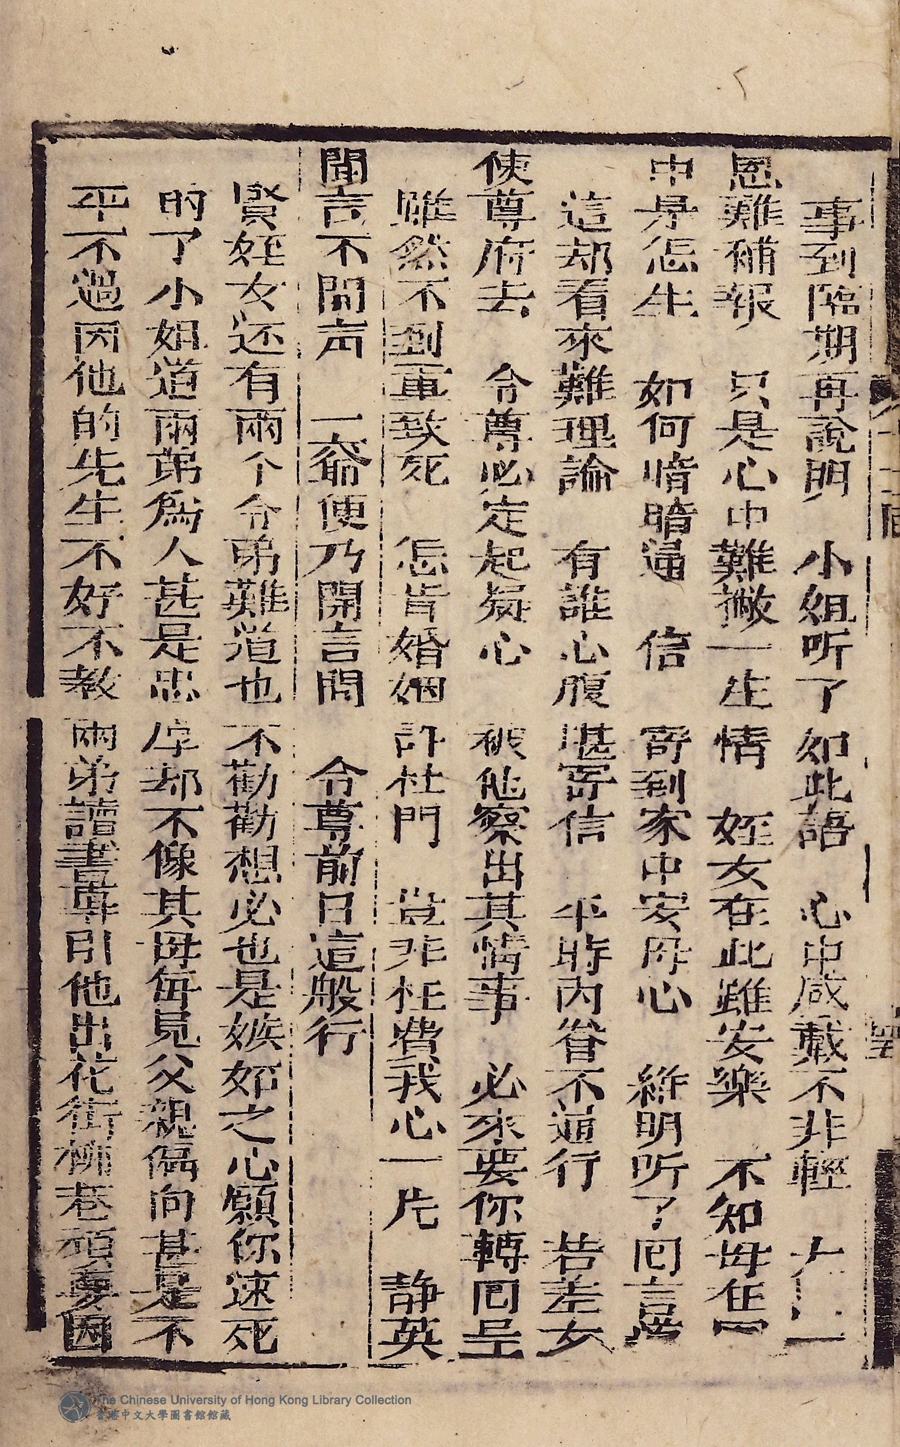 事到臨期再說明　小姐听了如此語　心中感戴不非輕　大
恩難補報　只是心中難撇一生情　姪女在此雖安樂　不知母在
中是怎生　如何悄暗通　信　寄到家中安母心　維明听了回言
這却看來難理論　有誰心腹堪寄信　平時内眷不通行　若差女
使尊府去　令尊必定起疑心　被他察出其情事　必來要你轉回
雖然不到軍致死　怎肯婚姻許杜門　豈非枉費我心一片　静英
聞言不開声　一爺便乃開言問　令尊前日這般行
賢姪女还有兩个令弟難道也不勸勸想必也是嫉妒之心願你速死
的了小姐道兩弟爲人甚是忠厚却不像其母每見父親偏向甚是不
平不過因他的先生不好不教兩弟讀書專引他出花街柳巷頑耍因
The Chinese University of Hong Kong Library Collection
香港中文大學圖書館館藏